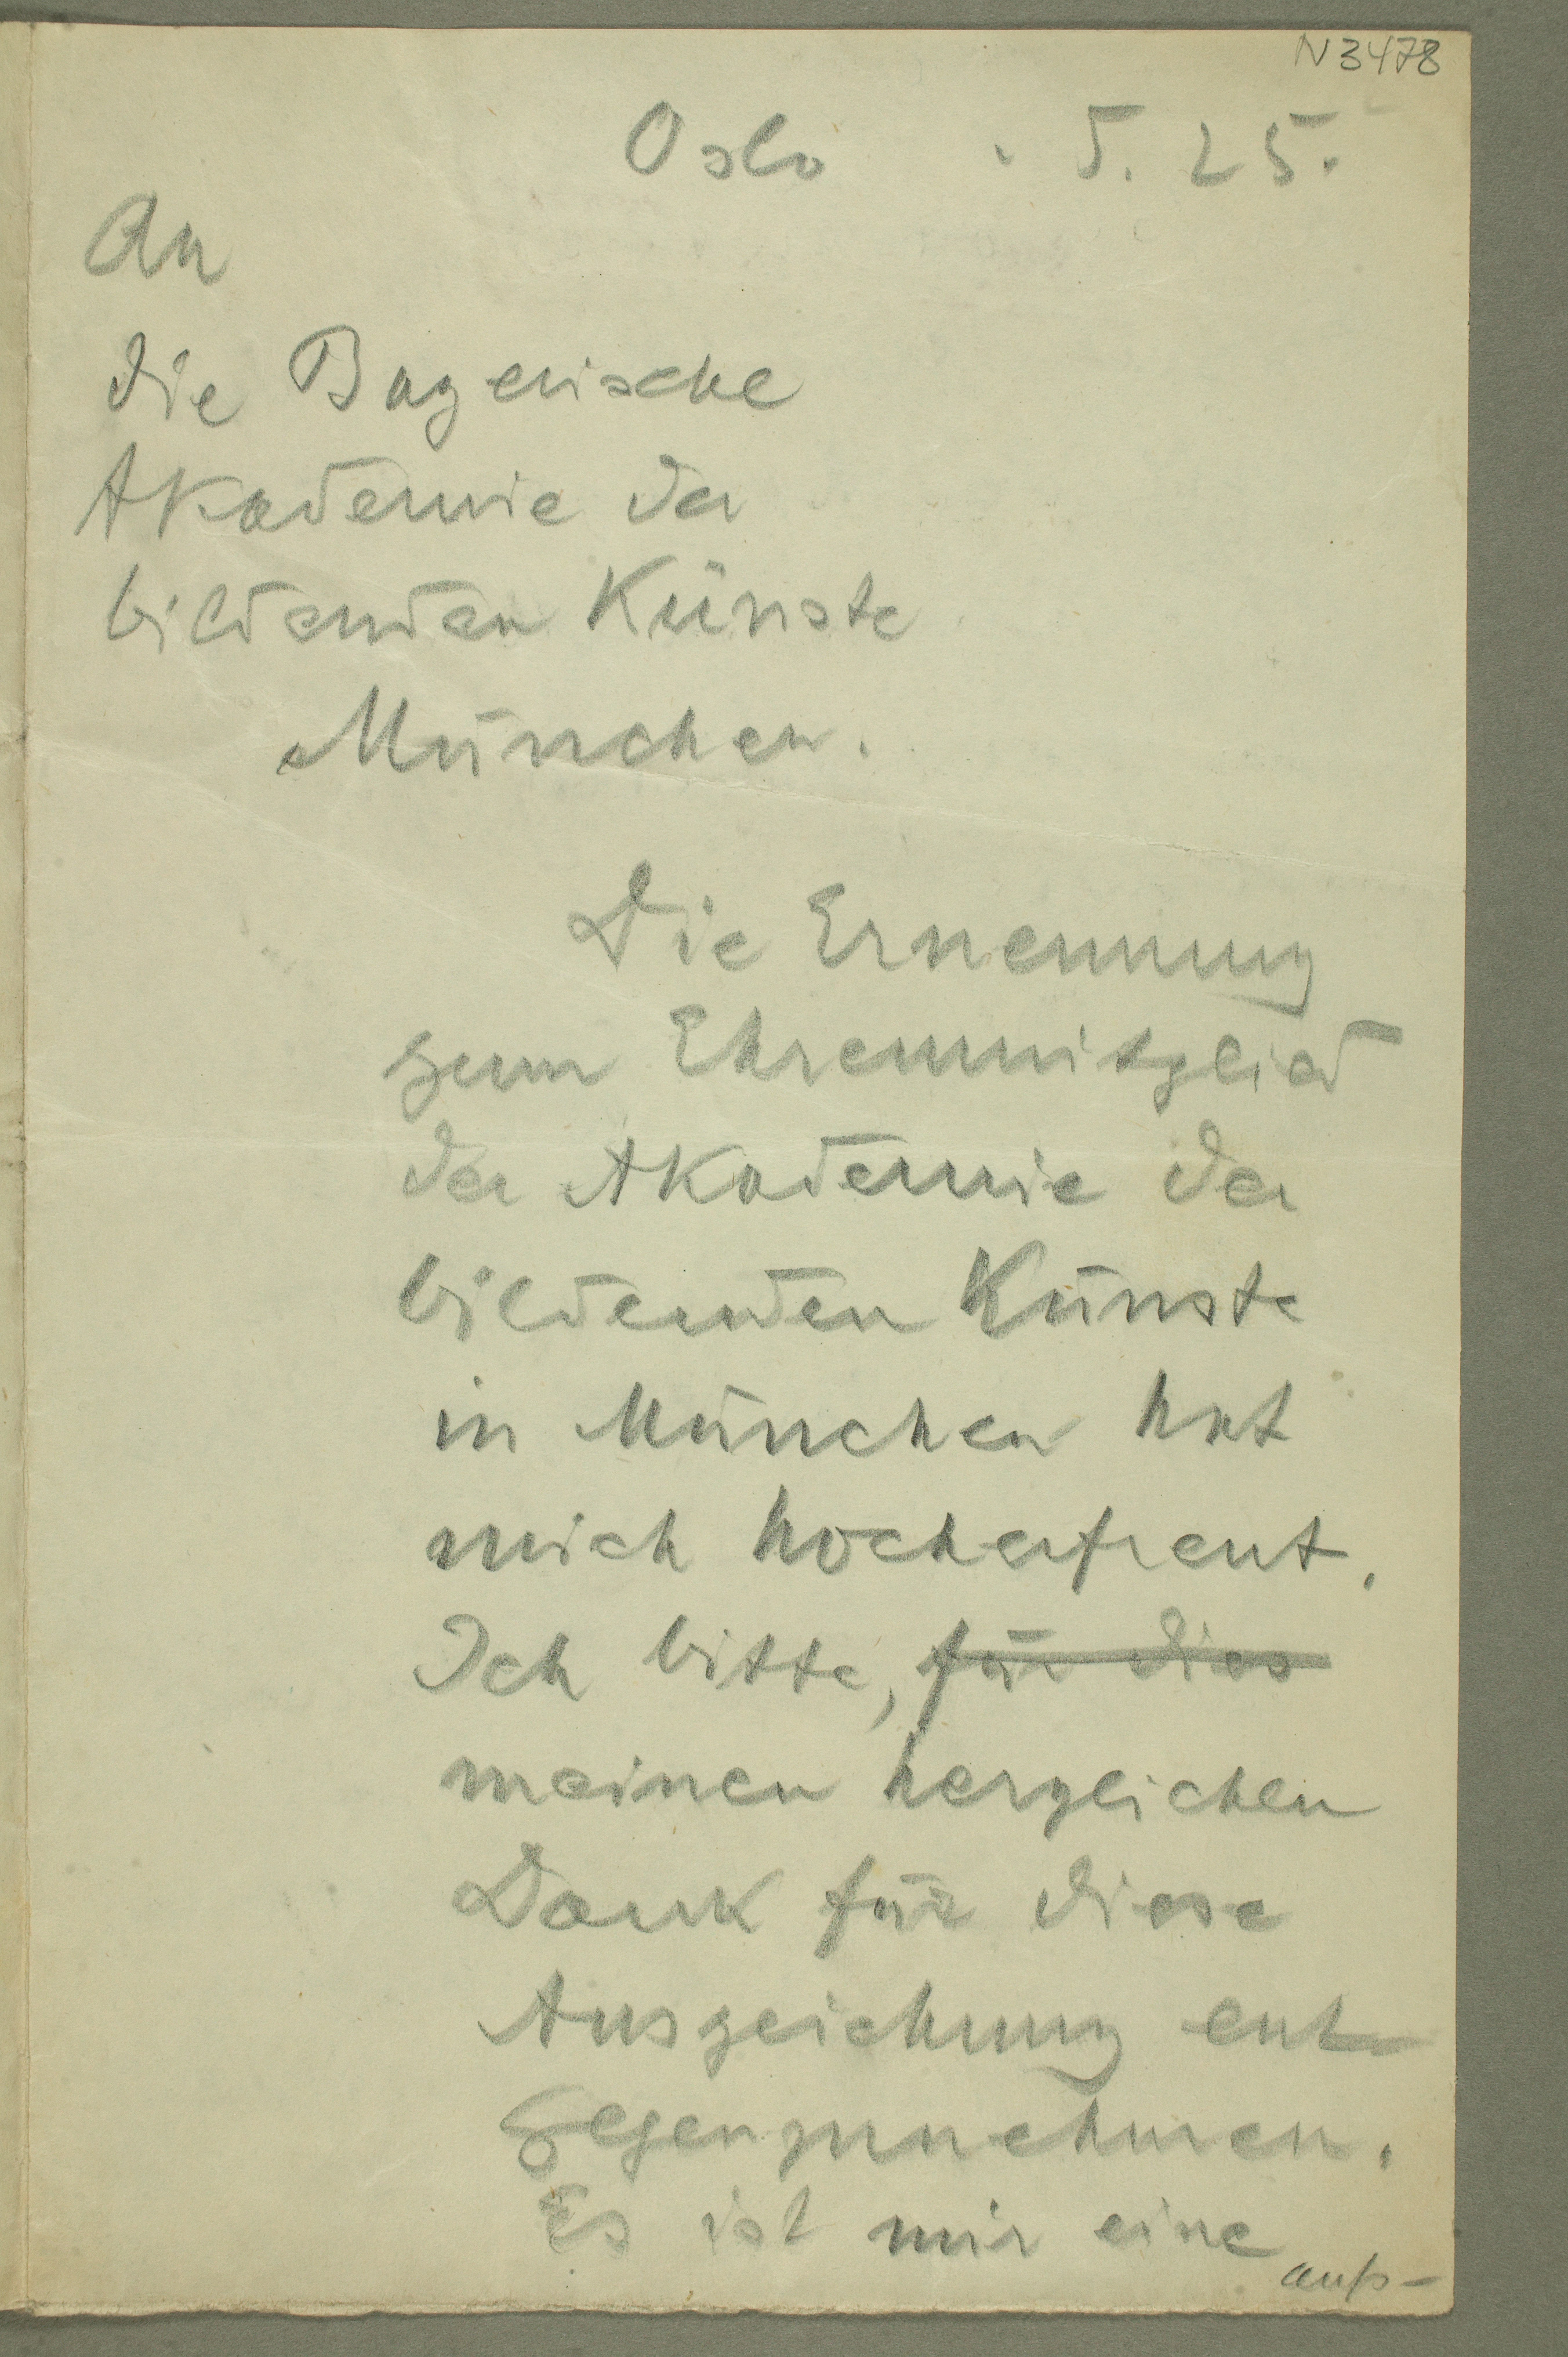 N 3478
Oslo . 5. 25.
An
die Bayerische
Akademie der
bildenden Künste
München.
Die Ernennung
zum Ehrenmitglied
der Akademie der
bildenden Künste
in München hat
mich hocherfreut.
Ich bitte, für dies
meinen herzlichen
Dank für diese
Auszeichung ent-
gegenzunehmen.
Es ist mir eine
auß-